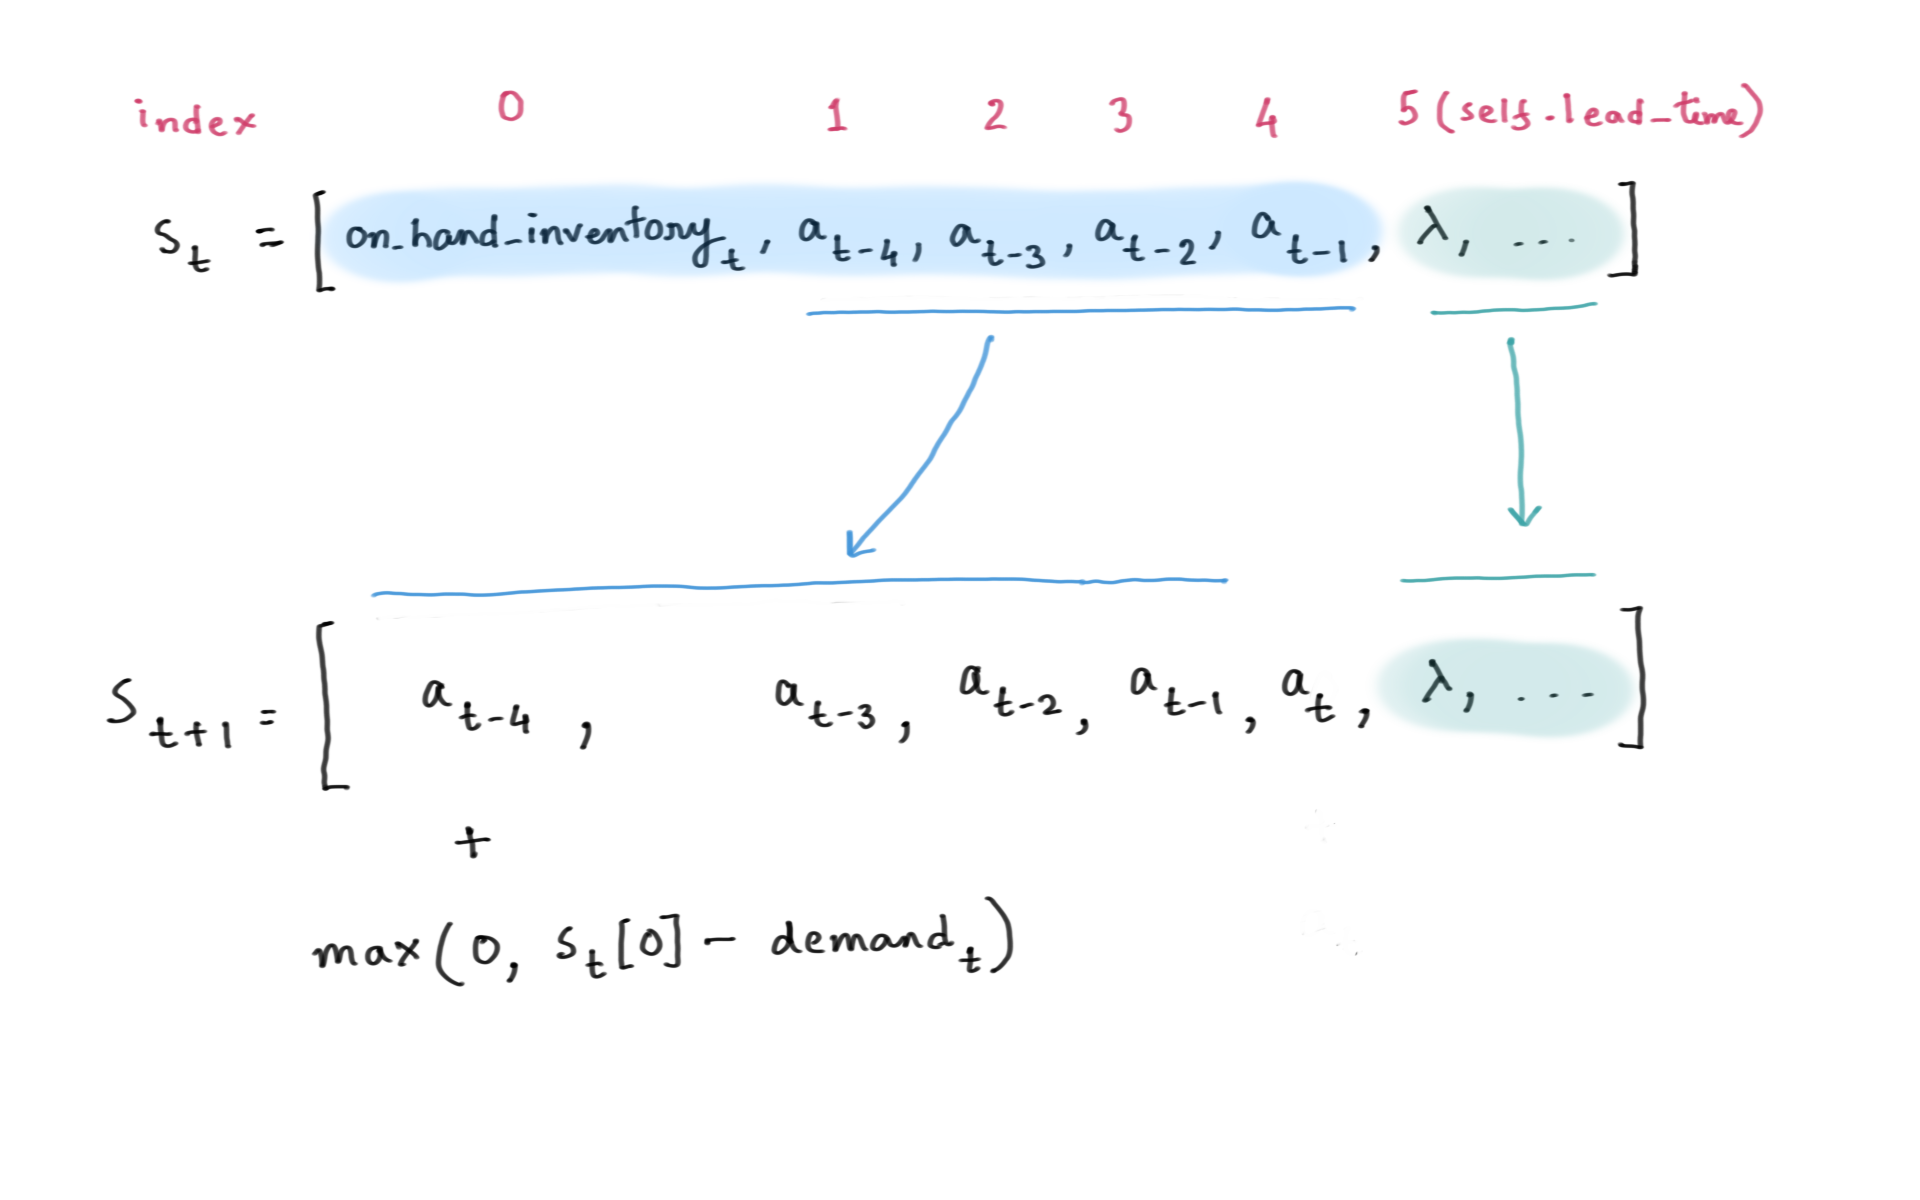 index 0 1 2 3 4 5 (self.lead_time)
s_t = [on_hand_inventory_t, a_t-4, a_t-3, a_t-2, a_t-1, λ, ...]
s_t+1 = [a_t-4, a_t-3, a_t-2, a_t-1, a_t, λ, ...]
+
max(0, s_t[0] - demand_t)